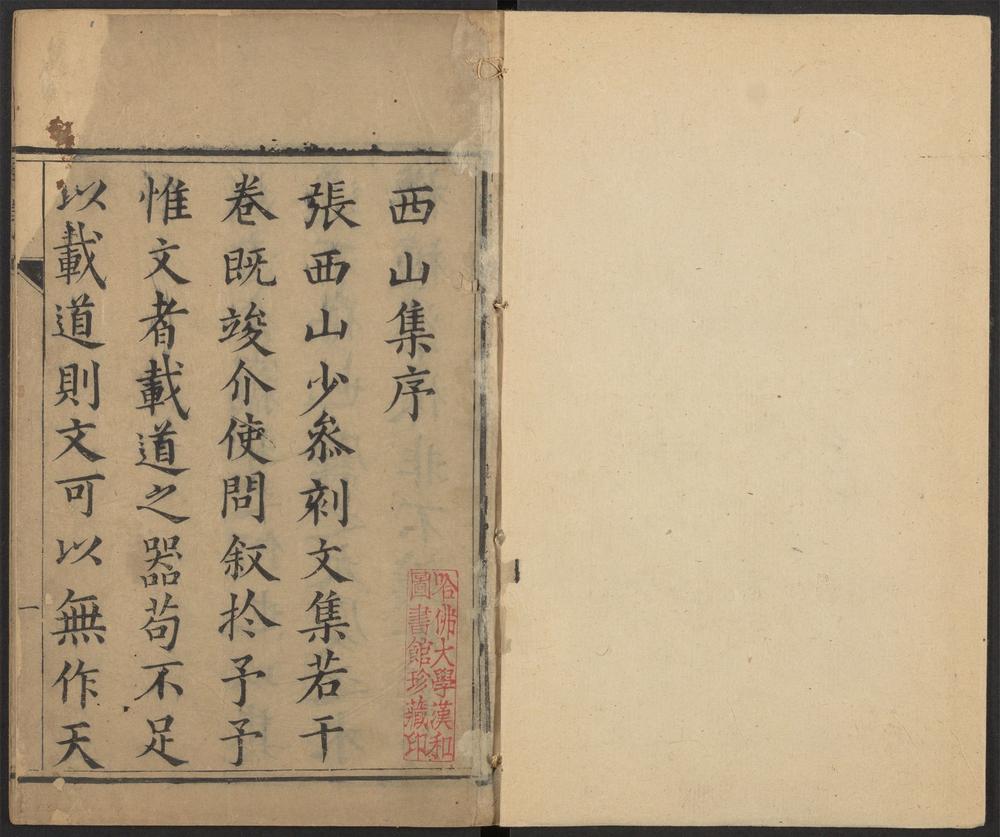 西山集序
張西山少叅刻文集若干
卷既竣介使問叙扵予予
惟文者載道之器苟不足
以載道則文可以無作天
一
哈佛大學漢和
圖書館珍藏印